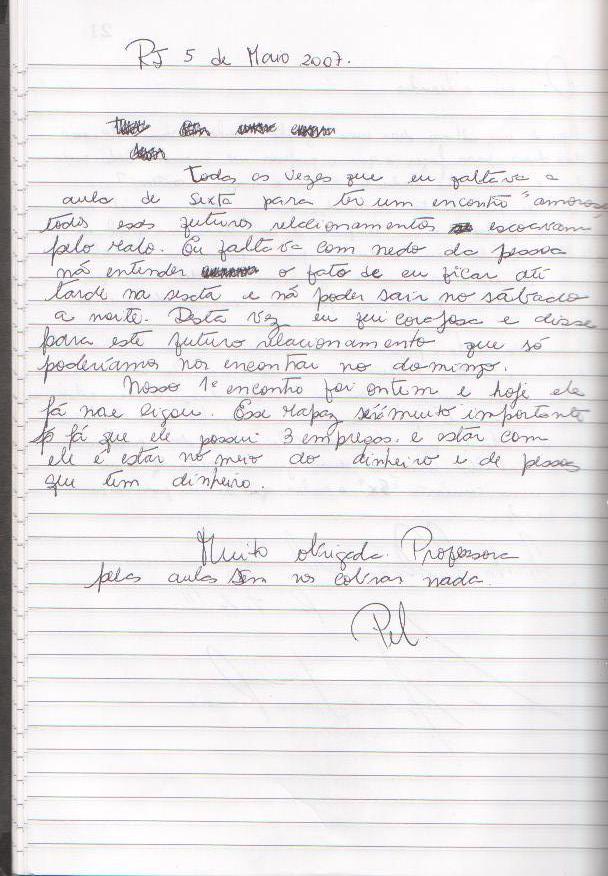 RJ 5 de Maio 2007.
Todas as vezes que eu faltava a
aula de sexta para ter um encontro "amoroso"
todos esses futuros relacionamentos escoavam
pelo ralo. Eu faltava com medo da pessoa
não entender o fato de eu ficar até
tarde na sexta e não poder sair no sábado
a noite. Desta vez eu fui corajosa e disse
para este futuro relacionamento que só
poderíamos nos encontrar no domingo.
Nosso 1º encontro foi ontem e hoje ele
já me ligou. Esse rapaz será muito importante
já que ele possui 3 empregos. e estar com
ele é estar no meio do dinheiro e de pessoas
que tem dinheiro.
Muito obrigada. Professora
pelas aulas sem nos cobrar nada.